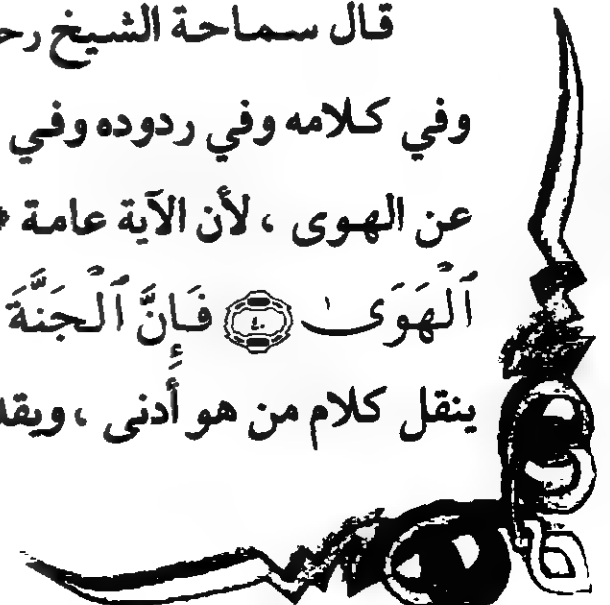 قال سماحة الشيخ
وفي كلامه وفي ردوده وفي
عن الهوى ، لأن الآية عامة
ٱلْهَوَىٰ ٤٠ فَإِنَّ ٱلْجَنَّةَ
ينقل كلام من هو أدنى ،